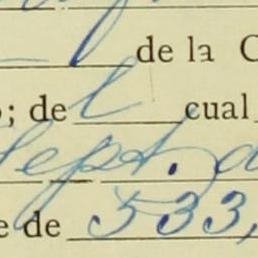 de la C
; de l cual
Sept. d
e de 533,